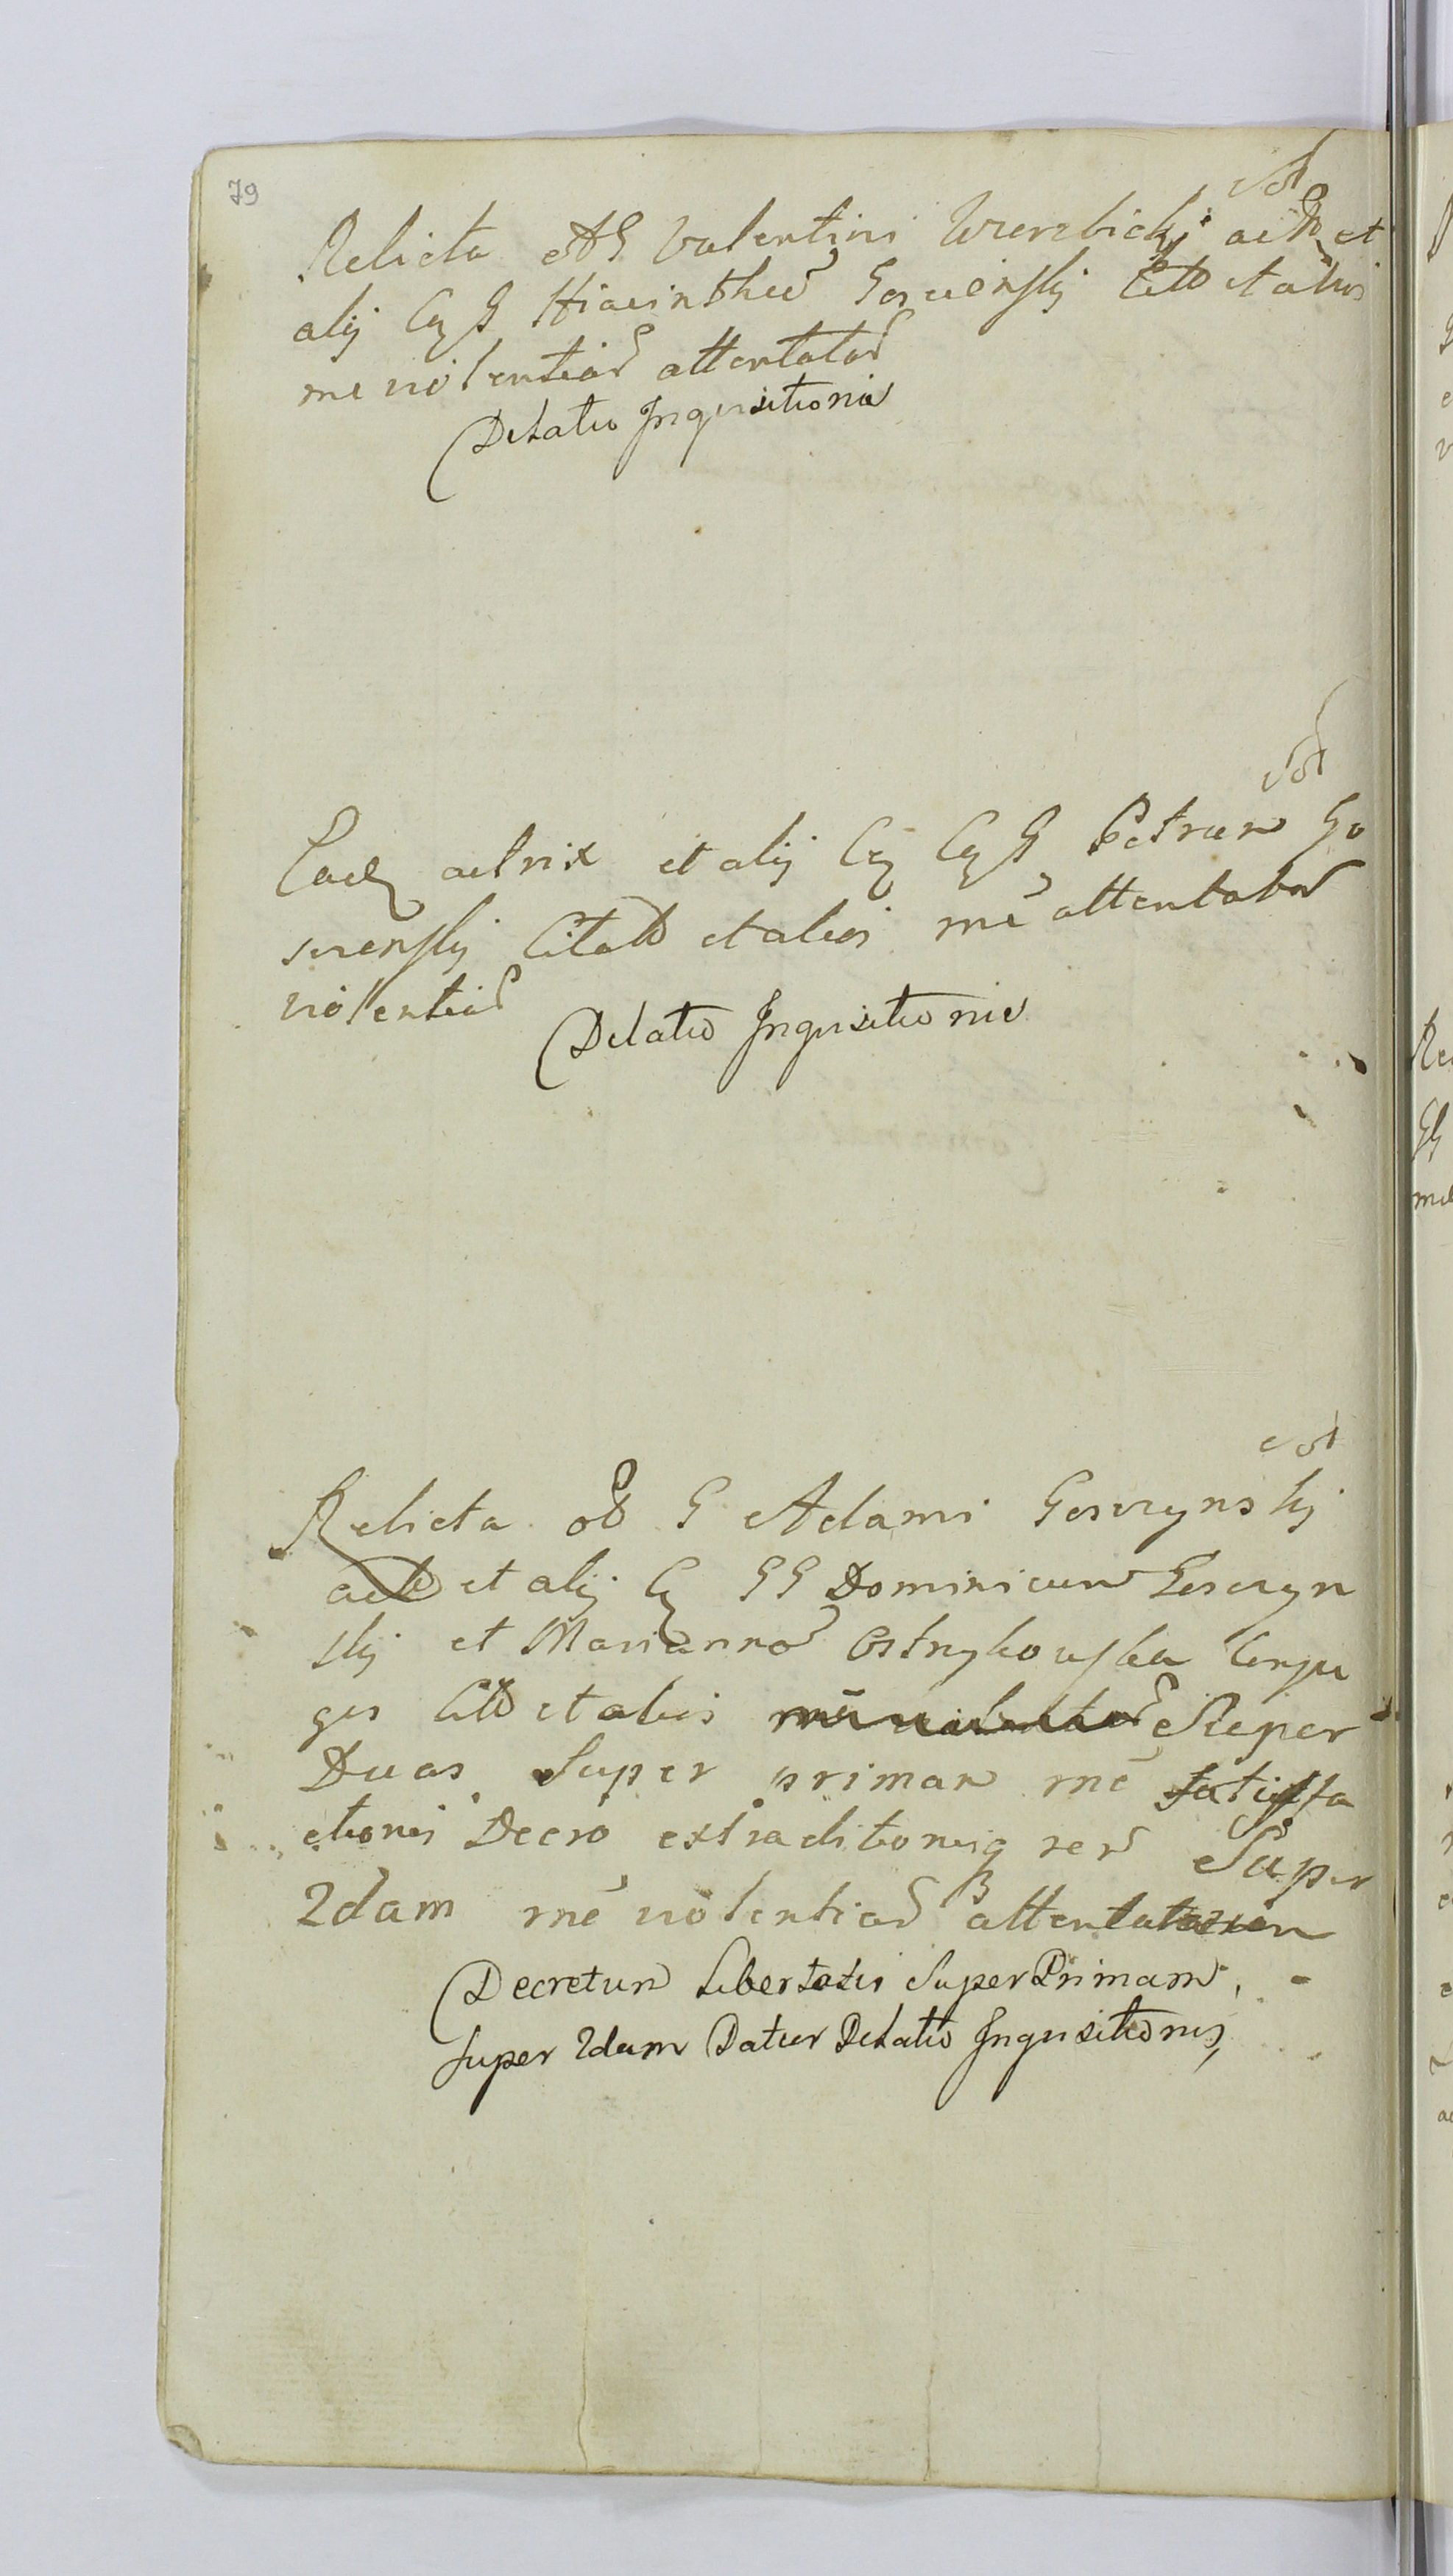 79
Sol
Relicta Valentini Wierzbickj et
alij Cq G Hiacinthũ Goscienskj Citt et alios
me violentiaȓ attentataȓ
Delatio Inquisitionis
Sol
Eadẽ actrix et alij Cq Cq G Petrum Go
scienskj Citatt et alios mẽ attentataȓ
violentiaȓ
Delatio Inquisitionis
Sol
Relicta olĩ G Adami Gosczynskj
et alij Cq GG Dominicum Gosczyn
skj et Mariannã Ostrykowska Conju
ges Citt et alios Super
Duas Super primam mẽ satisfa
ctionis Decro extraditionisq rerũ Super
2dam mẽ violentiaȓ attentatarum
Decretum Libertatis Super Primam,
Super 2dam Datur Delatio Inquisitionis,